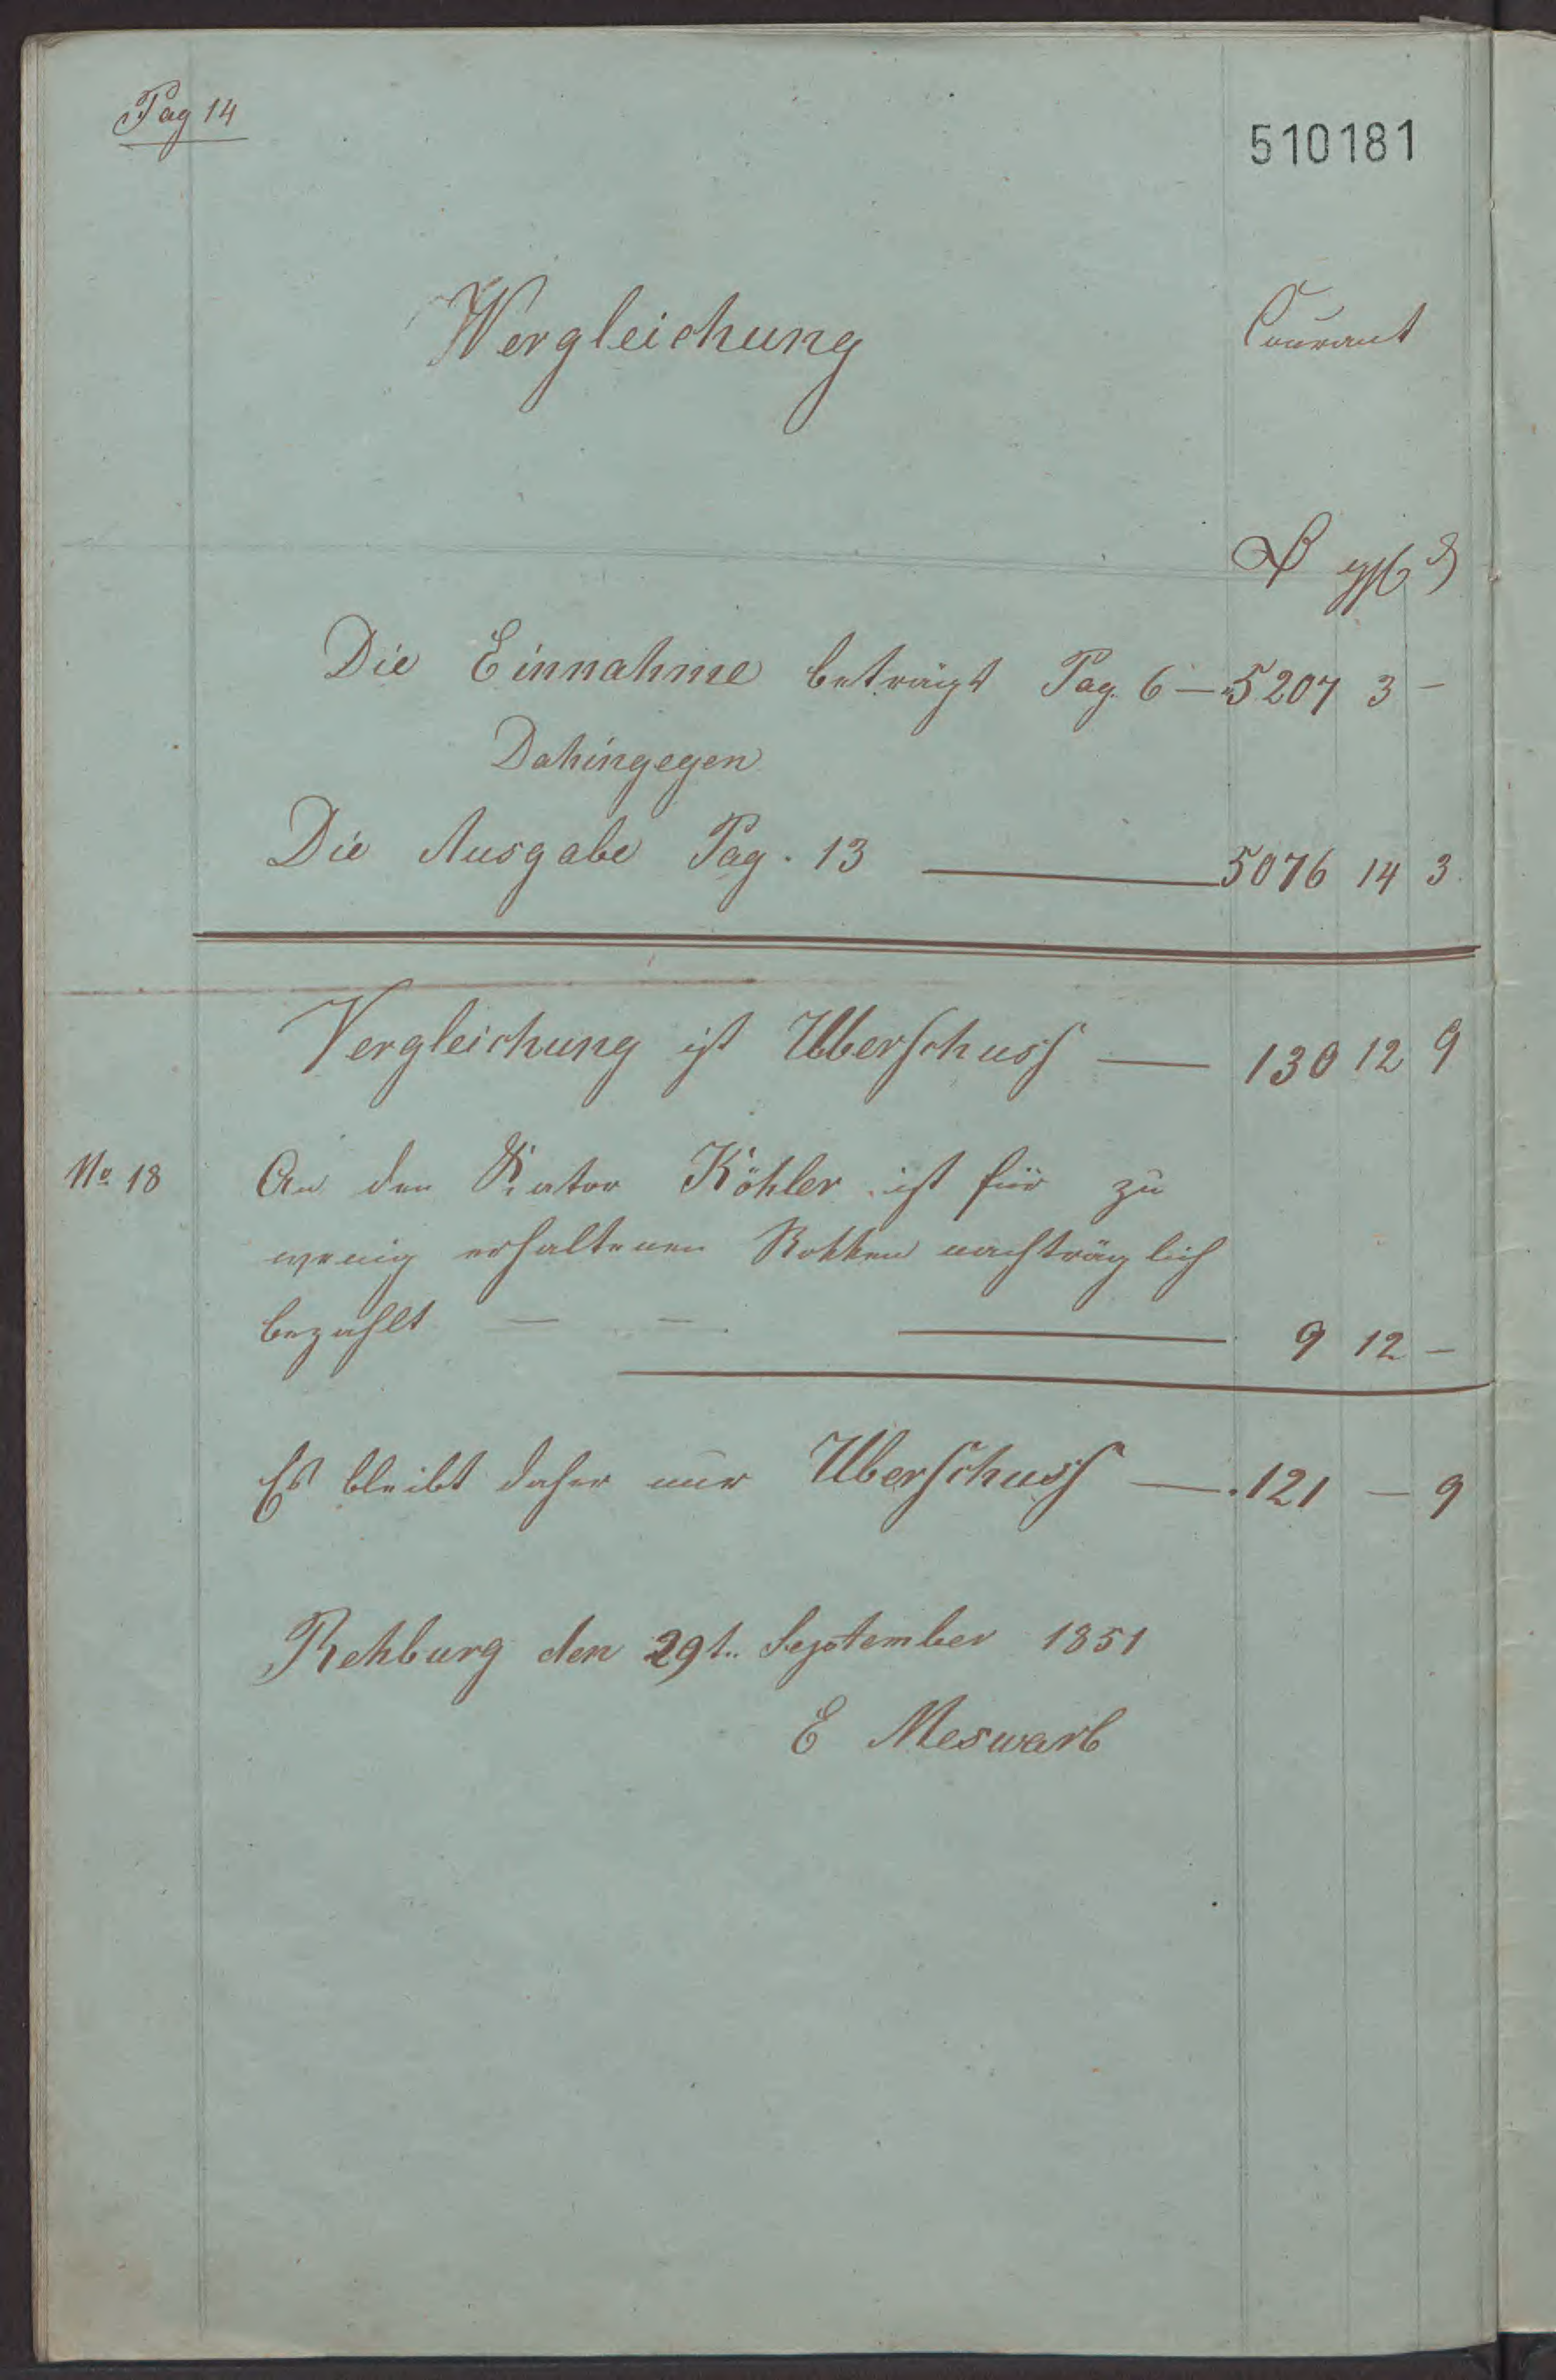 Pag 14
510181
Vergleichung Courant
ggl ₰
Die Einnahme beträgt Pag. 6 — 5207 3 —
Dahingegen
Die Ausgabe Pag. 13 — 5076 14 3
Vergleichung ist Uberschuss — 130 12 9
No 18 An den Köhler ist für zu
wenig erhaltenen Rokken nachträglich
bezahlt — — — 9 12 —
Es bleibt daher nur Uberschuss — 121 — 9
Rehburg den 29t. September 1851
E Meswarb